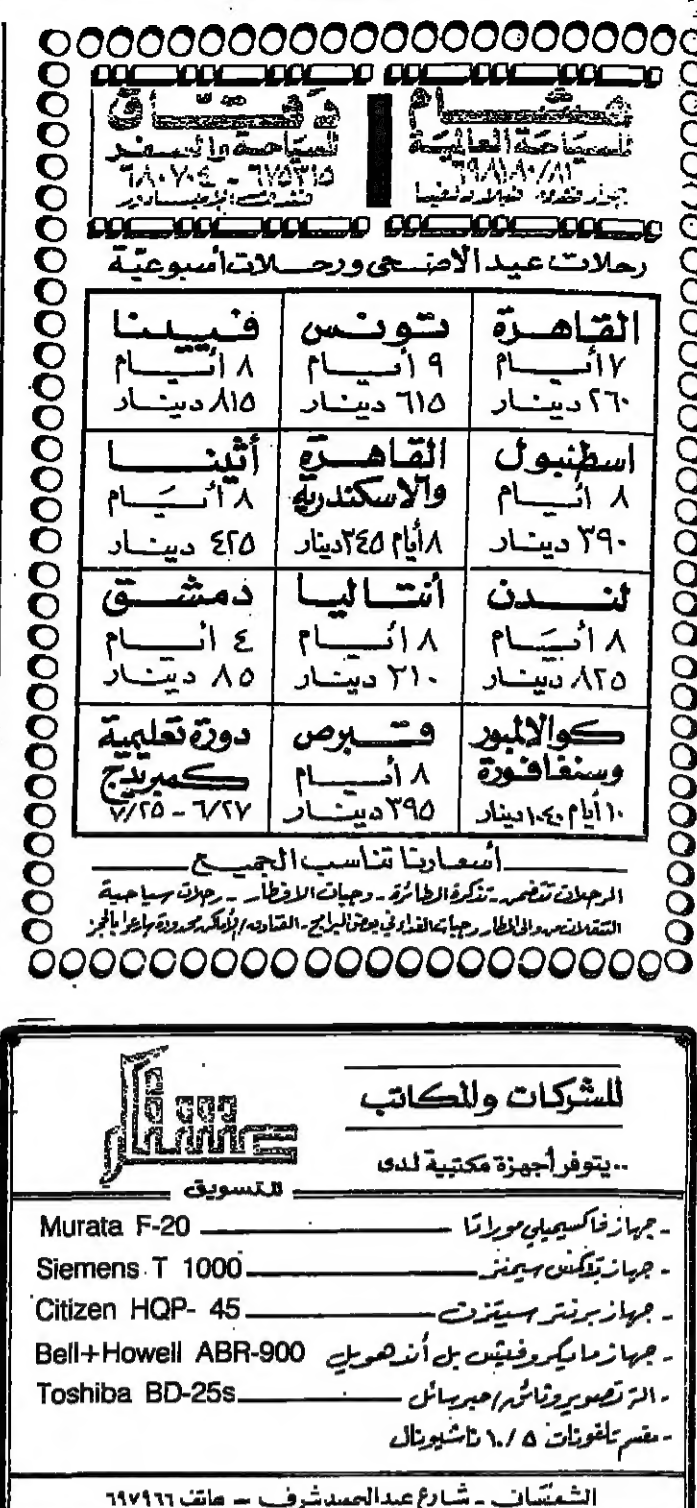 هشام
للسياحة العالمية
٦٩٨١٨٠/٨١
دقّاق
للسياحة والسفر
٦٧٥٣١٥ - ٦٨٠٧٠٤
رحلات عيد الاضحى ورحلات أسبوعيّة
القاهرة
٧ أيام
٢٦٠ دينار
تونس
٩ أيام
٦١٥ دينار
فيينا
٨ أيام
٨١٥ دينار
اسطنبول
٨ أيام
٣٩٠ دينار
القاهرة
والاسكندرية
٨ أيام ٣٤٥ دينار
أثينا
٨ أيام
٤٢٥ دينار
لندن
٨ أيام
٨٢٥ دينار
أنتاليا
٨ أيام
٣١٠ دينار
دمشق
٤ أيام
٨٥ دينار
كوالالمبور
وسنغافورة
١٠ أيام ١٠٤٠ دينار
قبرص
٨ أيام
٣٩٥ دينار
دورة تعليمية
كمبريدج
٦/٢٧ - ٧/٢٥
أسعارنا تناسب الجميع
الرحلات تتضمن - تذكرة الطائرة - وجبات الافطار - رحلات سياحية
التنقلات من والى المطار وجبات الغذاء في بعض البرامج - الفنادق / الأماكن محدودة سارعوا بالحجز
للشركات وللمكاتب
..يتوفر أجهزة مكتبية لدى
للتسويق
- جهاز فاكسيميلي موراتا Murata F-20
- جهاز تلكس سيمنز Siemens T 1000
- جهاز برنتر سيتزن Citizen HQP- 45
- جهاز مايكروفيش بل أند هويل Bell+Howell ABR-900
- الة تصوير وثائق / حبر سائل Toshiba BD-25s
- مقسم تلفونات ١٠/٥ ناشيونال
الشميساني - شارع عبد الحميد شرف - هاتف ٦٩٧٩٦٦